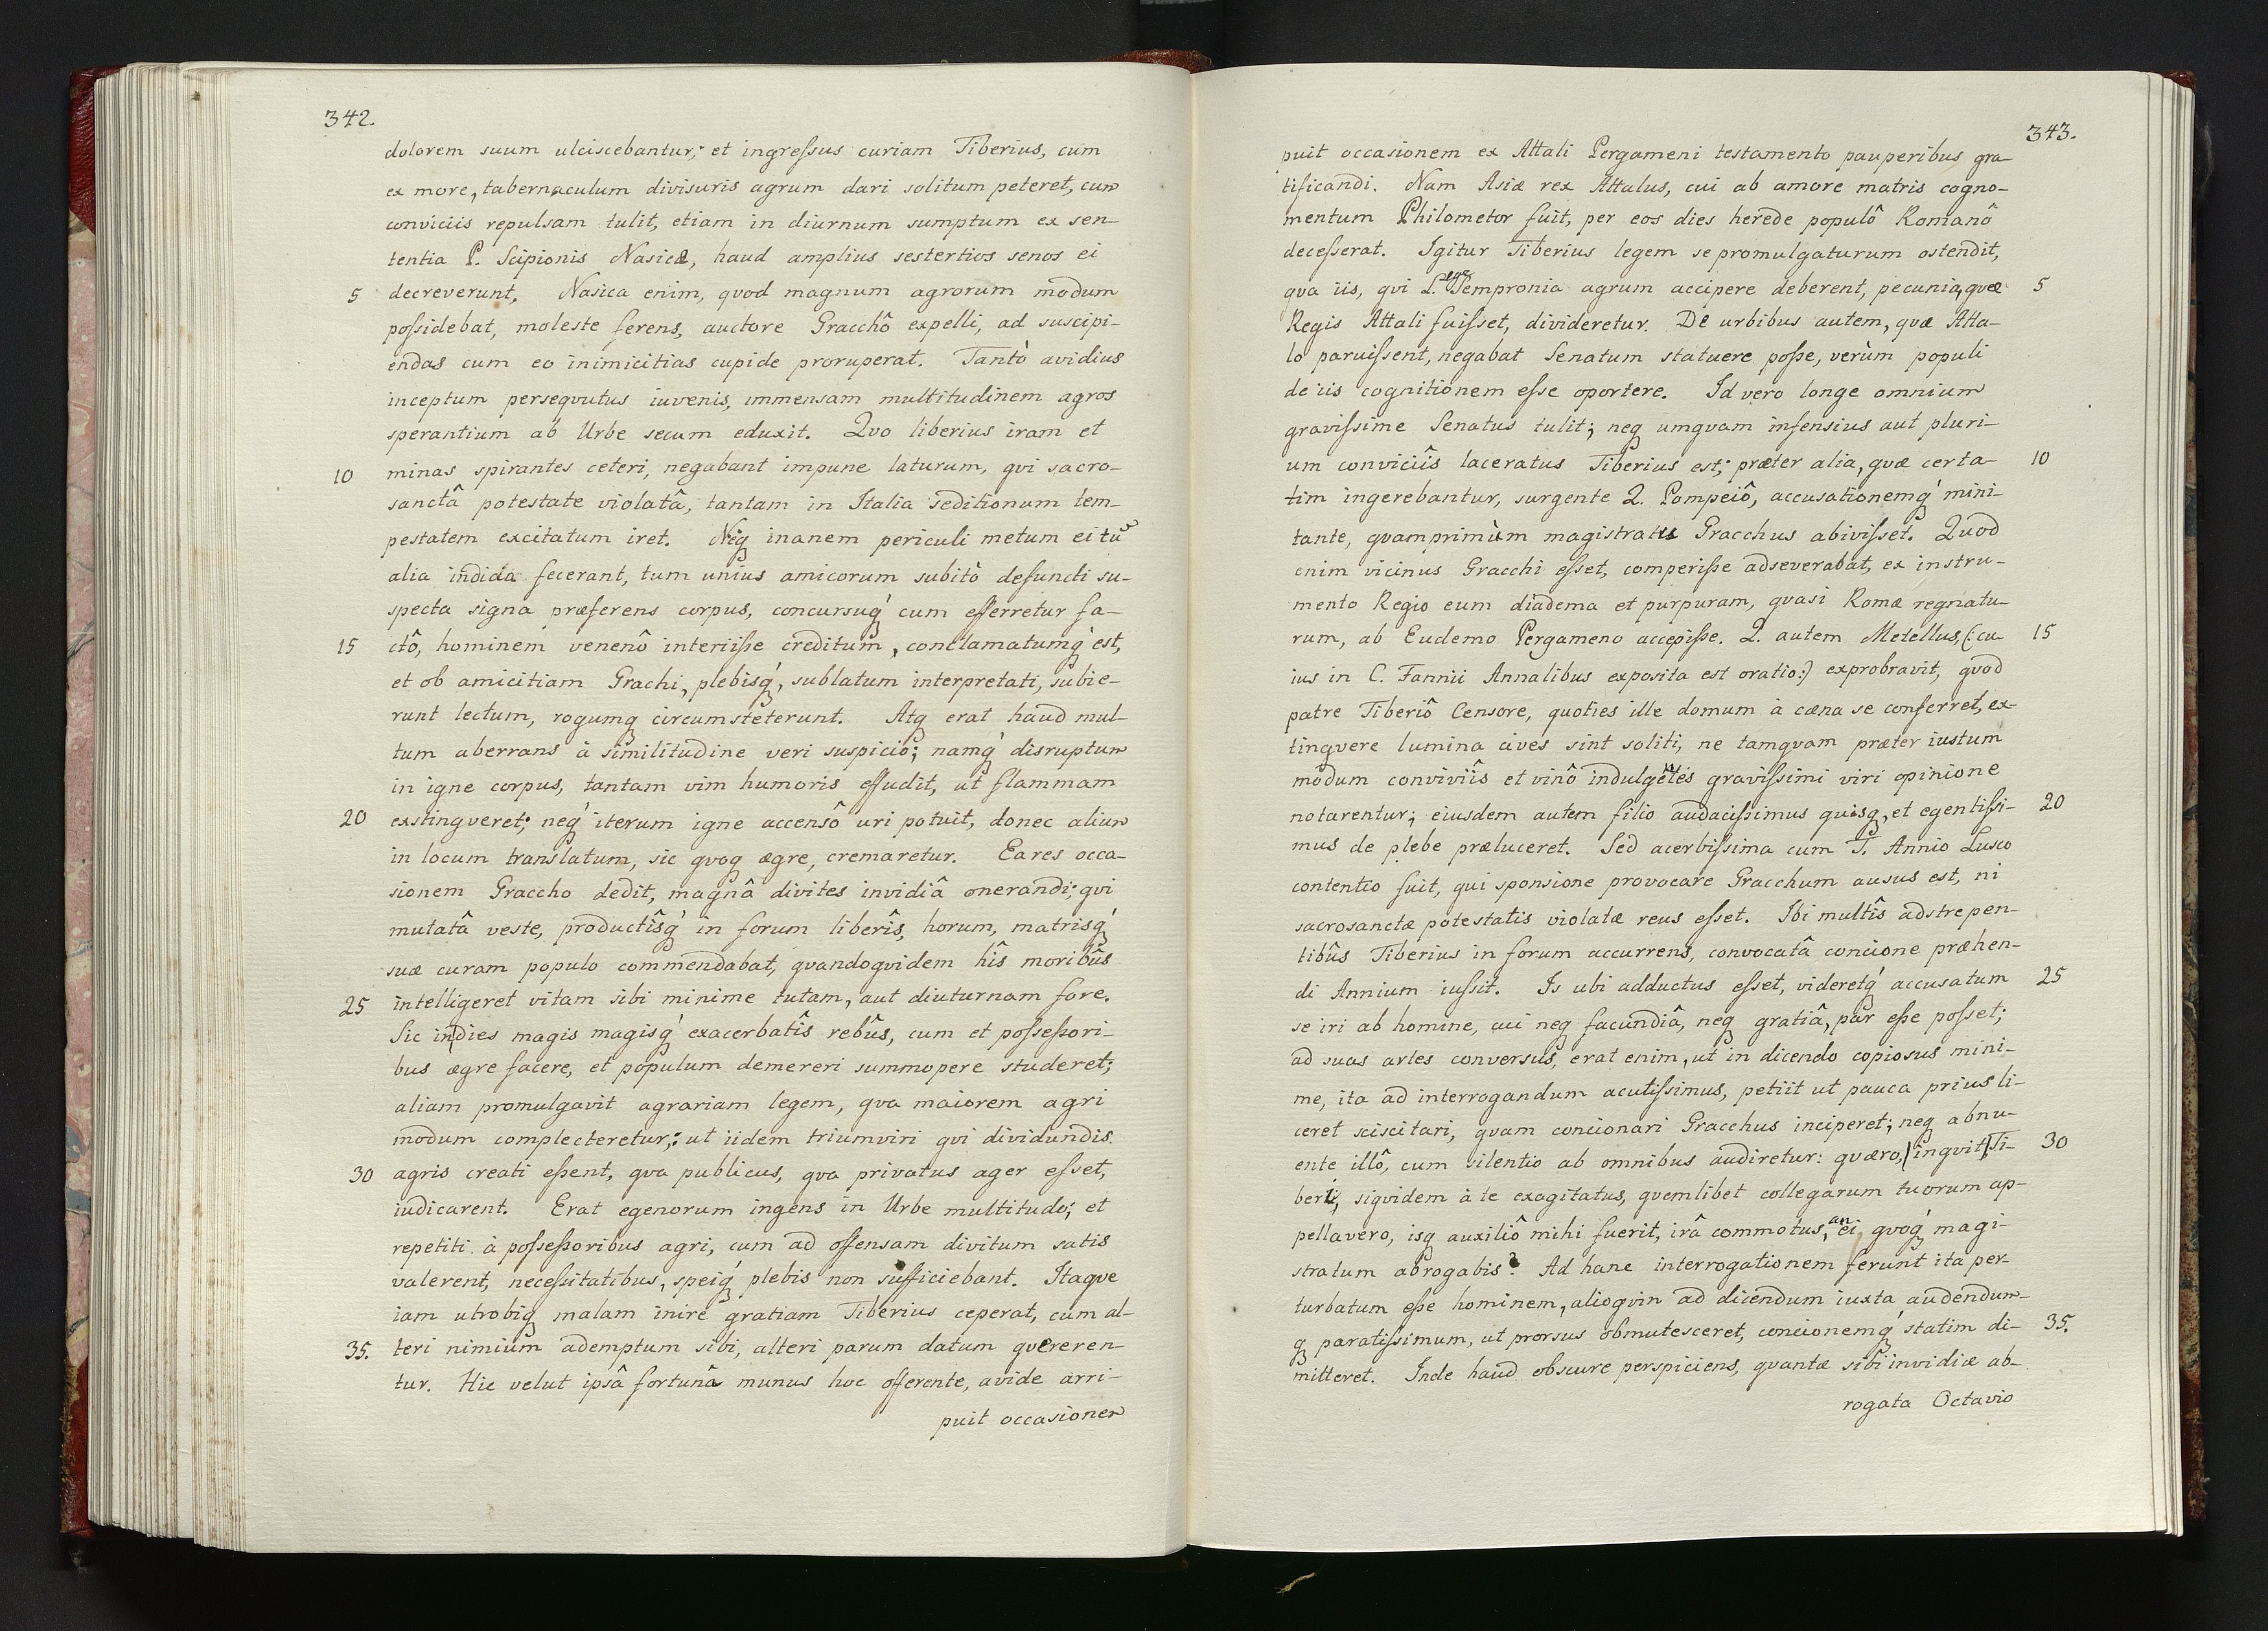 342.
dolorem suum ulciscebantur; et ingreſsus curiam Tiberius, cum
ex more, tabernaculum divisuris agrum dari solitum peteret, cum
conviciis repulsam tulit, etiam in diurnum sumptum ex sen-
tentia P. Scipionis Nasicæ, haud amplius sestertios senos ei
5 decreverunt. Nasica enim, qvod magnum agrorum modum
poſsidebat, moleste ferens, auctore Gracchô expelli, ad suscipi-
endas cum eo inimicitias cupide proruperat. Tantò avidius
inceptum perseqvutus iuvenis, immensam multitudinem agros
sperantium ab Urbe secum eduxit. Qvo liberius iram et
10 minas spirantes ceteri, negabant impune laturum, qvi sacro-
sanctâ potestate violatâ, tantam in Italia seditionum tem-
pestatem excitatum iret. Neq inanem periculi metum ei tū
alia indicia fecerant, tum unius amicorum subitò defuncti su-
specta signa præferens corpus, concursuq́ cum efferretur fa-
15 ctô, hominem venenô interiiſse creditum, conclamatumq́ est,
et ob amicitiam Grachi, plebisq́, sublatum interpretati, subie-
runt lectum, rogumq circumsteterunt. Atq erat haud mul-
tum aberrans à similitudine veri suspicio; namq́ disruptum
in igne corpus, tantam vim humoris effudit, ut flammam
20 exstingveret; neq́ iterum igne accensô uri potuit, donec alium
in locum translatum, sic qvoq ægre, cremaretur. Ea res occa-
sionem Graccho dedit, magnâ divites invidiâ onerandi; qvi
mutatâ veste, productîsq́ in forum liberîs, horum, matrisq́
suæ curam populo commendabat, qvandoqvidem hîs moribûs
25 intelligeret vitam sibi minime tutam, aut diuturnam fore.
Sic in|dies magis magisq́ exacerbatîs rebûs, cum et poſseſsori-
bus ægre facere, et populum demereri summopere studeret;
aliam promulgavit agrariam legem, qva maiorem agri
modum complecteretur; ut iidem triumviri qvi dividundis
30 agris creati eſsent, qva publicus, qva privatus ager eſset,
iudicarent. Erat egenorum ingens in Urbe multitudo; et
repetiti à poſseſsoribus agri, cum ad offensam divitum satis
valerent, neceſsitatibus, speiq́ plebis non sufficiebant. Itaqve
iam utrobiq malam inire gratiam Tiberius ceperat, cum al-
35. teri nimium ademptum sibi, alteri parum datum qvereren-
tur. Hic velut ipsâ fortunâ munus hoc offerente, avide arri-
puit occasionem
343.
puit occasionem ex Attali Pergameni testamento pauperibus gra-
tificandi. Nam Asiæ rex Attalus, cui ab amore matris cogno-
mentum Philometor fuit, per eos dies herede populô Romanô
deceſserat. Igitur Tiberius legem se promulgaturum ostendit,
qva iis, qvi Lege Sempronia agrum accipere deberent, pecunia, qvæ 5
Regis Attali fuiſset, divideretur. De urbibus autem, qvæ Atta-
lo paruiſsent, negabat Senatum statuere poſse, verùm populi
de iis cognitionem eſse oportere. Id vero longe omnium
graviſsime Senatus tulit; neq umqvam infensius aut pluri-
um conviciîs laceratus Tiberius est; præter alia, qvæ certa- 10
tim ingerebantur, surgente Q. Pompeiô, accusationemq́ mini-
tante, qvamprimùm magistratu Gracchus abiviſset. Quod
enim vicinus Gracchi eſset, comperiſse adseverabat, ex instru-
mento Regio eum diadema et purpuram, qvasi Romæ regnatu-
rum, ab Eudemo Pergameno accepiſse. Q. autem Metellus, (: cu- 15
ius in C. Fannii Annalibus exposita est oratio:) exprobravit, qvod
patre Tiberiô Censore, quoties ille domum à cæna se conferret, ex-
tingvere lumina cives sint soliti, ne tamqvam præter iustum
modum conviviîs et vinô indulgētes graviſsimi viri opinione
notarentur; eiusdem autem filio audaciſsimus quisq, et egentiſsi- 20
mus de plebe præluceret. Sed acerbiſsima cum T. Annio Lusco
contentio fuit, qui sponsione provocare Gracchum ausus est, ni
sacrosanctæ potestatis violatæ reus eſset. Ibi multîs adstrepen-
tibûs Tiberius in forum accurrens, convocatâ concione præhen-
di Annium iuſsit. Is ubi adductus eſset, videretq́ accusatum 25
se iri ab homine, cui neq facundiâ, neq gratiâ, par eſse poſset;
ad suas artes conversus, erat enim, ut in dicendo copiosus mini-
me, ita ad interrogandum acutiſsimus, petiit ut pauca prius li-
ceret sciscitari, qvam concionari Gracchus inciperet; neq abnu-
ente illô, cum silentio ab omnibus audiretur: qværo, |inqvit| Ti- 30
beri, siqvidem à te exagitatus, qvemlibet collegarum tuorum ap-
pellavero, isq auxiliô mihi fuerit, irâ commotus, an ei qvoq́ magi-
stratum abrogabis? Ad hanc interrogationem ferunt ita per-
turbatum eſse hominem, alioqvin ad dicendum iuxta audendum-
q paratiſsimum, ut prorsus obmutesceret, concionemq́ statim di- 35.
mitteret. Inde haud obscure perspiciens, qvantæ sibi invidiæ ab-
rogata Octavio